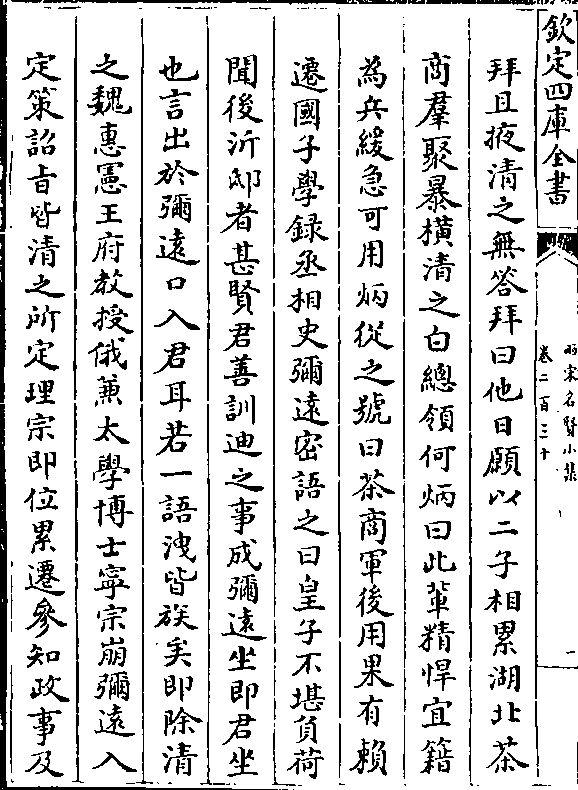 欽定四庫全書
兩宋名賢小集
卷二百三十
一
拜且掖清之無答拜曰他日願以二子相累湖北茶
商羣聚暴横清之白總領何炳曰此輩精悍宜籍
為兵緩急可用炳從之號曰茶商軍後用果有賴
遷國子學録丞相史彌遠密語之曰皇子不堪負荷
聞後沂邸者甚賢君善訓迪之事成彌遠坐即君坐
也言出於彌遠口入君耳若一語洩皆族矣即除清
之魏惠憲王府教授俄兼太學博士寧宗崩彌遠入
定策詔旨皆清之所定理宗即位累遷參知政事及